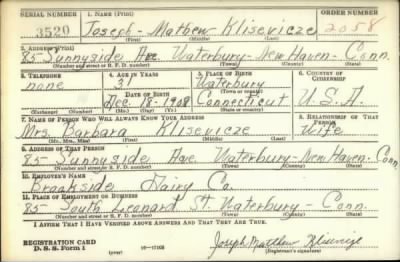 SERIAL NUMBER 1. NAME (Print) ORDER NUMBER
3520 Joseph - Mathew Klisevicze 2058
2. ADDRESS (Print)
85 Sunnyside Ave. Waterbury - New Haven - Conn.
(Number and street or R. F. D. number) (Town) (County) (State)
3. TELEPHONE 4. AGE IN YEARS 5. PLACE OF BIRTH 6. COUNTRY OF CITIZENSHIP
none 31 Waterbury
DATE OF BIRTH (Town or county)
Dec. 18 - 1908 Connecticut U.S.A.
(Exchange) (Number) (Mo.) (Day) (Yr.) (State or country)
7. NAME OF PERSON WHO WILL ALWAYS KNOW YOUR ADDRESS 8. RELATIONSHIP OF THAT PERSON
Mrs. Barbara Klisevicze Wife
(Mr., Mrs., Miss) (First) (Middle) (Last)
9. ADDRESS OF THAT PERSON
85 - Sunnyside Ave Waterbury - New Haven - Conn
(Number and street or R. F. D. number) (Town) (County) (State)
10. EMPLOYER'S NAME
Brookside Dairy Co.
11. PLACE OF EMPLOYMENT OR BUSINESS
85 - South Leonard St. Waterbury - Conn.
(Number and street or R. F. D. number) (Town) (County) (State)
I AFFIRM THAT I HAVE VERIFIED ABOVE ANSWERS AND THAT THEY ARE TRUE.
REGISTRATION CARD
D. S. S. Form 1 (over) 16-17105 Joseph Matthew
(Registrant's signature)